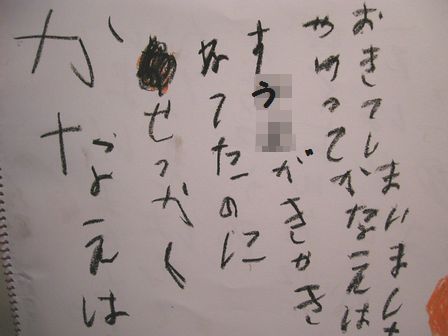 かなえは
せっかく
ねてたのに
すう
がきかき
やめってかなえは
おきてしまいました